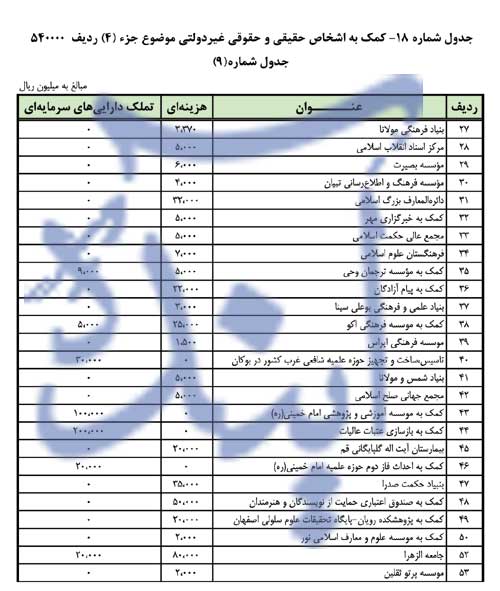 جدول شماره ۱۸- کمک به اشخاص حقیقی و حقوقی غیردولتی موضوع جزء (۴) ردیف ۵۴۰۰۰۰
جدول شماره(۹)
مبالغ به میلیون ریال
ردیف عنـــــوان هزینه‌ای تملک دارایی‌های سرمایه‌ای
۲۷ بنیاد فرهنگی مولانا ۳،۳۷۰ ۰
۲۸ مرکز اسناد انقلاب اسلامی ۵،۰۰۰ ۰
۲۹ مؤسسه بصیرت ۶،۰۰۰ ۰
۳۰ مؤسسه فرهنگ و اطلاع‌رسانی تبیان ۴،۰۰۰ ۰
۳۱ دائره‌المعارف بزرگ اسلامی ۳۲،۰۰۰ ۰
۳۲ کمک به خبرگزاری مهر ۵،۰۰۰ ۰
۳۳ مجمع عالی حکمت اسلامی ۵،۰۰۰ ۰
۳۴ فرهنگستان علوم اسلامی ۷،۰۰۰ ۰
۳۵ کمک به مؤسسه ترجمان وحی ۵،۰۰۰ ۹،۰۰۰
۳۶ کمک به پیام آزادگان ۲۲،۰۰۰ ۰
۳۷ بنیاد علمی و فرهنگی بوعلی سینا ۳،۰۰۰ ۰
۳۸ کمک به موسسه فرهنگی اکو ۲۵،۰۰۰ ۵،۰۰۰
۳۹ موسسه فرهنگی ایراس ۱،۵۰۰ ۰
۴۰ تاسیس،ساخت و تجهیز حوزه علمیه شافعی غرب کشور در بوکان ۰ ۳۰،۰۰۰
۴۱ بنیاد شمس و مولانا ۵،۰۰۰ ۰
۴۲ مجمع جهانی صلح اسلامی ۵،۰۰۰ ۰
۴۳ کمک به موسسه آموزشی و پژوهشی امام خمینی(ره) ۰ ۱۰۰،۰۰۰
۴۴ کمک به بازسازی عتبات عالیات ۰ ۲۰۰،۰۰۰
۴۵ بیمارستان آیت اله گلپایگانی قم ۲۰،۰۰۰ ۰
۴۶ کمک به احداث فاز دوم حوزه علمیه امام خمینی(ره) ۰ ۲۰،۰۰۰
۴۷ بنیاد حکمت صدرا ۳۵،۰۰۰ ۰
۴۸ کمک به صندوق اعتباری حمایت از نویسندگان و هنرمندان ۵۰،۰۰۰ ۰
۴۹ کمک به پژوهشکده رویان-پایگاه تحقیقات علوم سلولی اصفهان ۲۰،۰۰۰ ۰
۵۰ کمک به موسسه علوم و معارف اسلامی نور ۲،۰۰۰ ۰
۵۲ جامعه الزهرا ۸۰،۰۰۰ ۲۰،۰۰۰
۵۳ موسسه پرتو ثقلین ۲،۰۰۰ ۰